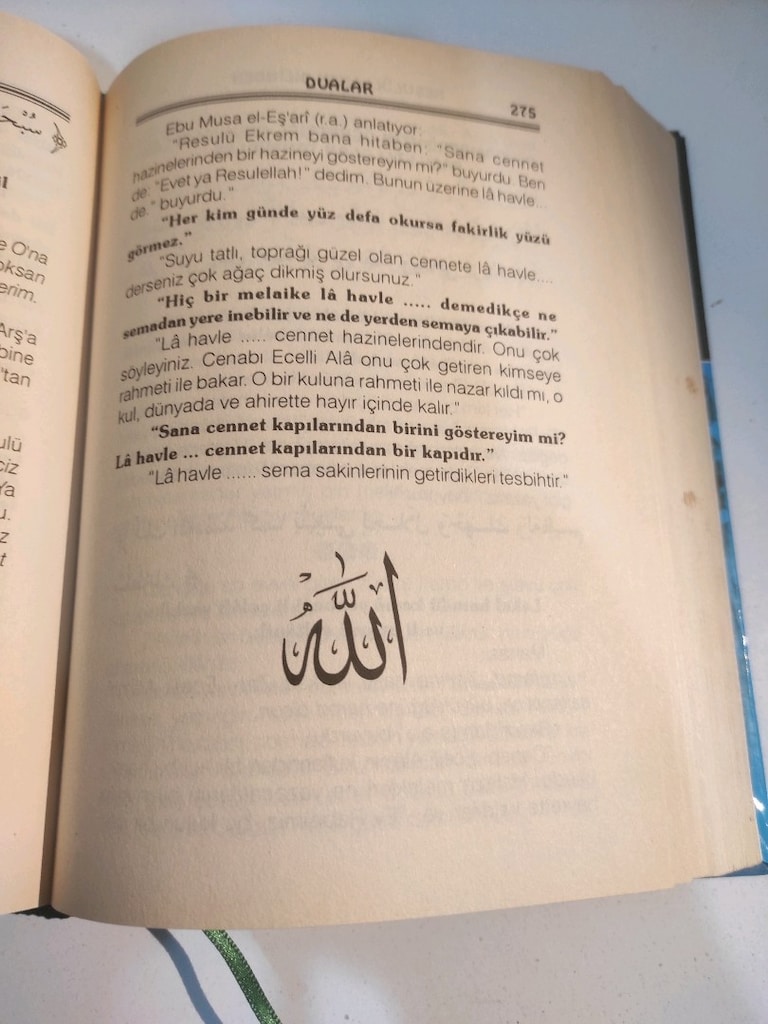 DUALAR
275
Ebu Musa el-Eş'arî (r.a.) anlatıyor:
"Resulü Ekrem bana hitaben: "Sana cennet
hazinelerinden bir hazineyi göstereyim mi?" buyurdu. Ben
de. "Evet ya Resulellah!" dedim. Bunun üzerine lâ havle...
de." buyurdu."
"Her kim günde yüz defa okursa fakirlik yüzü
görmez."
"Suyu tatlı, toprağı güzel olan cennete lâ havle....
derseniz çok ağaç dikmiş olursunuz."
"Hiç bir melaike lâ havle ..... demedikçe ne
semadan yere inebilir ve ne de yerden semaya çıkabilir."
"Lâ havle ..... cennet hazinelerindendir. Onu çok
söyleyiniz. Cenabı Ecelli Alâ onu çok getiren kimseye
rahmeti ile bakar. O bir kuluna rahmeti ile nazar kıldı mı, o
kul, dünyada ve ahirette hayır içinde kalır."
"Sana cennet kapılarından birini göstereyim mi?
Lâ havle ... cennet kapılarından bir kapıdır."
"Lâ havle ...... sema sakinlerinin getirdikleri tesbihtir."
اللّٰهُ
e O'na
oksan
erim.
Arş'a
bine
'tan
ulü
ciz
Ya
u.
z
t